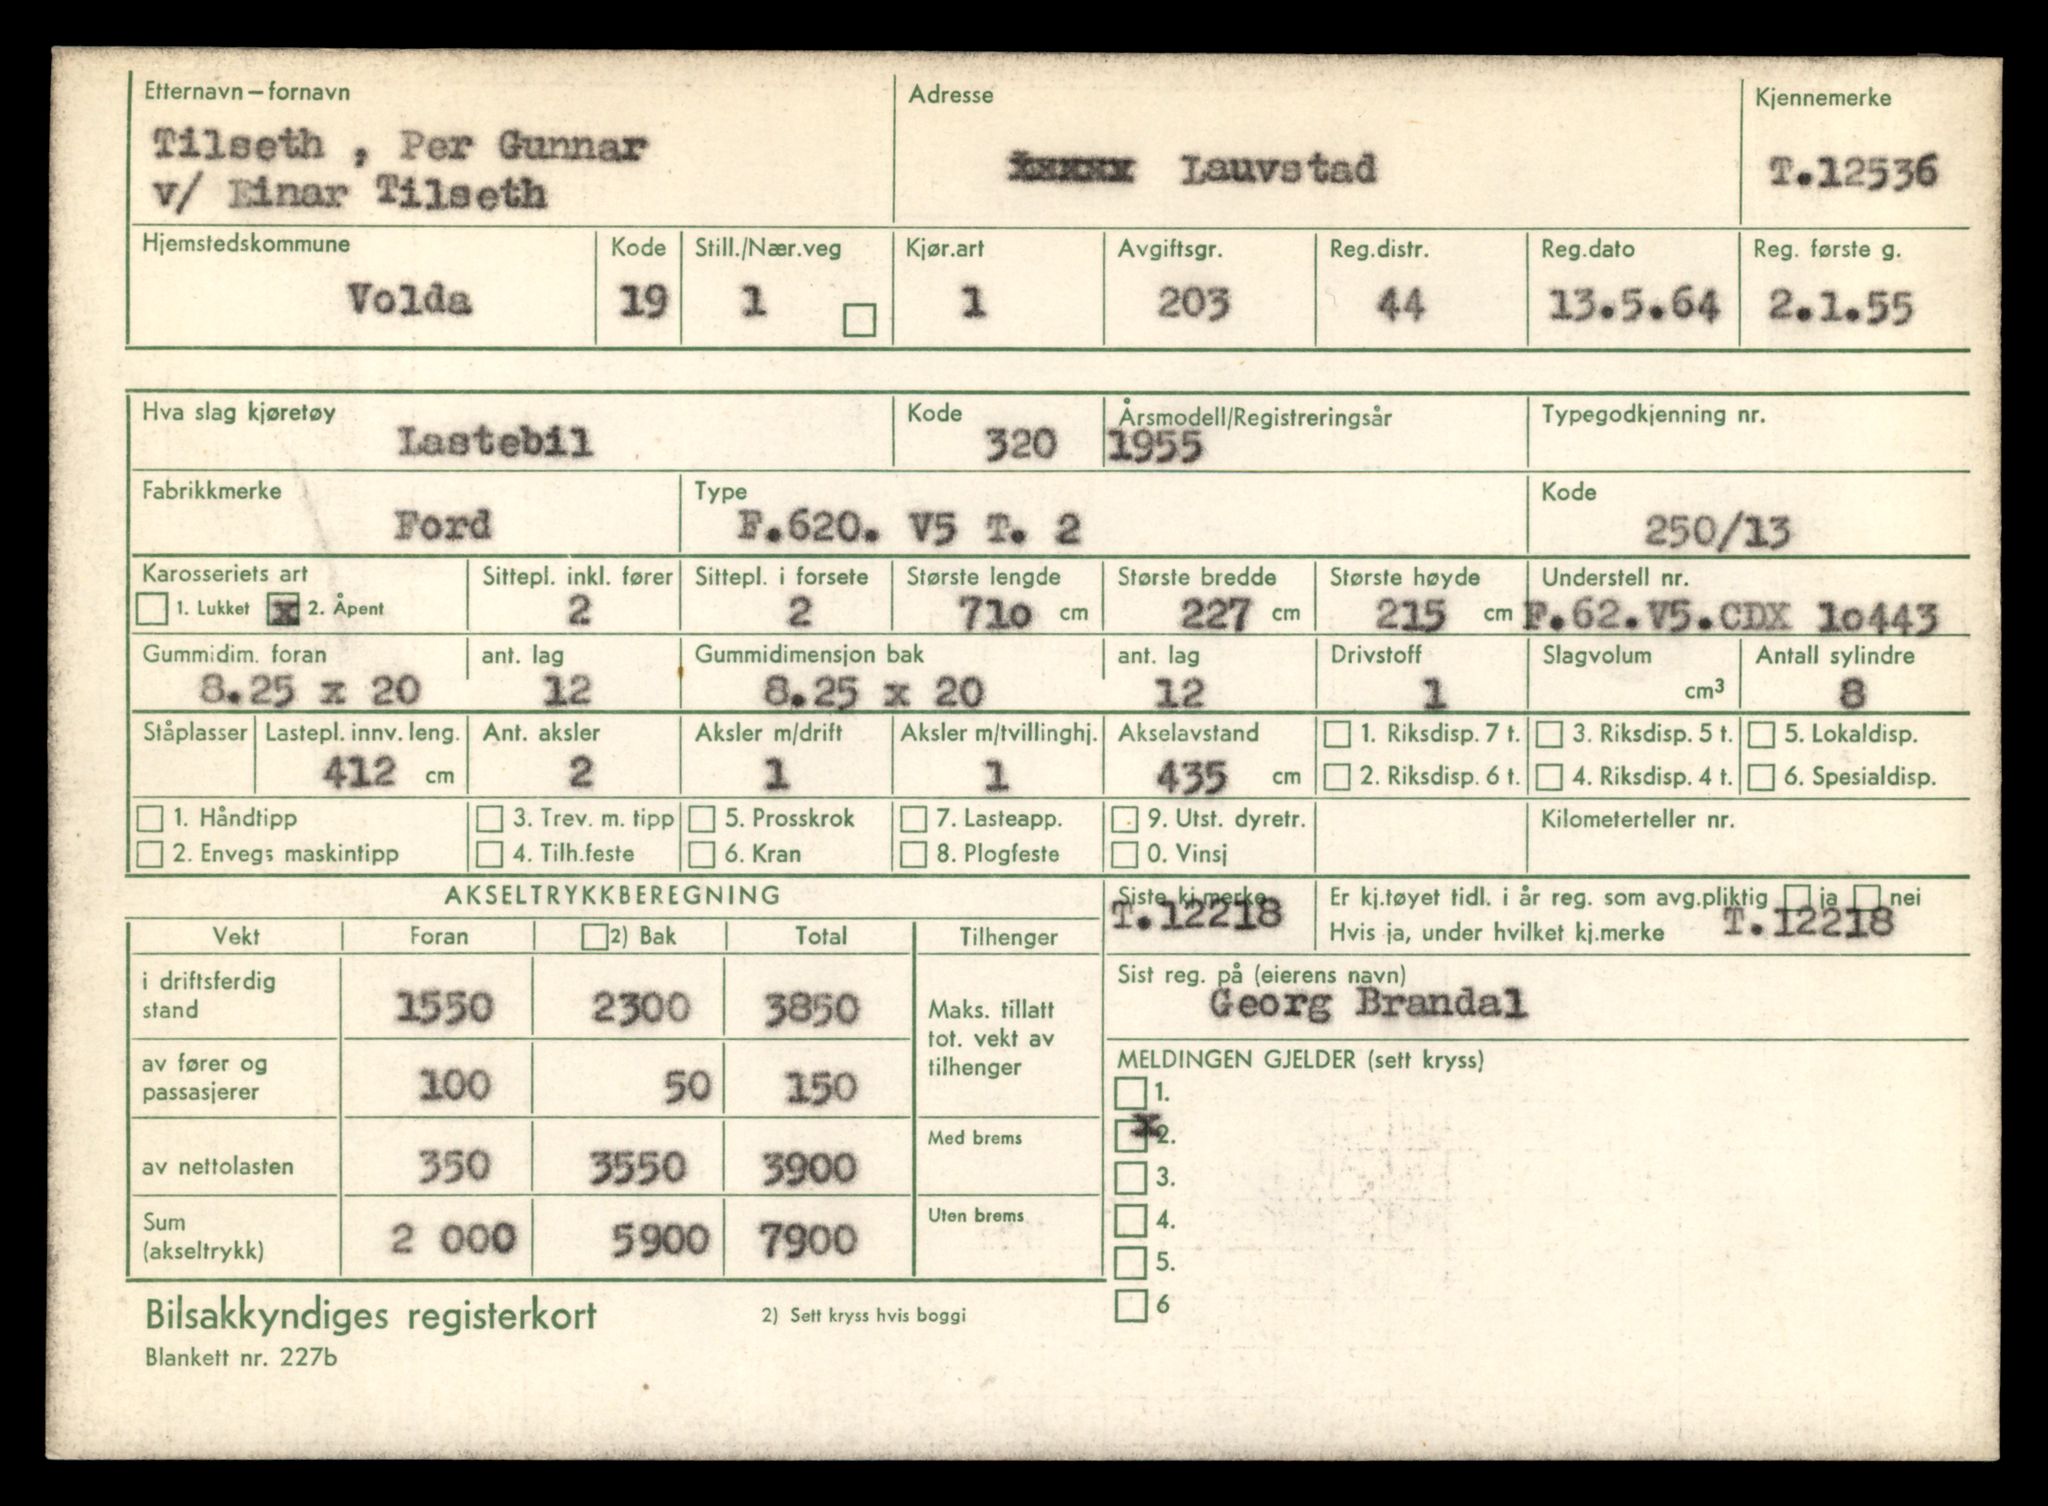 Etternavn – fornavn
Tilseth , Per Gunnar
v/ Einar Tilseth
Adresse
Lauvstad
Kjennemerke
T.12536
Hjemstedskommune
Volda
Kode
19
Still./Nær.veg
1
Kjør.art
1
Avgiftsgr.
203
Reg.distr.
44
Reg.dato
13.5.64
Reg. første g.
2.1.55
Hva slag kjøretøy
Lastebil
Kode
320
Årsmodell/Registreringsår
1955
Typegodkjenning nr.
Fabrikkmerke
Ford
Type
F.620. V5 T. 2
Kode
250/13
Karosseriets art
1. Lukket x 2. Åpent
Sittepl. inkl. fører
2
Sittepl. i forsete
2
Største lengde
710 cm
Største bredde
227 cm
Største høyde
215 cm
Understell nr.
F.62.V5.CDX 10443
Gummidim. foran
8.25 x 20
ant. lag
12
Gummidimensjon bak
8.25 x 20
ant. lag
12
Drivstoff
1
Slagvolum
cm³
Antall sylindre
8
Ståplasser
Lastepl. innv. leng.
412 cm
Ant. aksler
2
Aksler m/drift
1
Aksler m/tvillinghj.
1
Akselavstand
435 cm
1. Riksdisp. 7 t.
2. Riksdisp. 6 t.
3. Riksdisp. 5 t.
4. Riksdisp. 4 t.
5. Lokaldisp.
6. Spesialdisp.
1. Håndtipp
2. Envegs maskintipp
3. Trev. m. tipp
4. Tilh.feste
5. Prosskrok
6. Kran
7. Lasteapp.
8. Plogfeste
9. Utst. dyretr.
0. Vinsj
Kilometerteller nr.
AKSELTRYKKBEREGNING
Vekt Foran 2) Bak Total Tilhenger
i driftsferdig
stand
1550 2300 3850
av fører og
passasjerer
100 50 150
av nettolasten
350 3550 3900
Sum
(akseltrykk)
2 000 5900 7900
Maks. tillatt
tot. vekt av
tilhenger
Med brems
Uten brems
Siste kj.merke
T.12218
Er kj.tøyet tidl. i år reg. som avg.pliktig ja nei
Hvis ja, under hvilket kj.merke T.12218
Sist reg. på (eierens navn)
Georg Brandal
MELDINGEN GJELDER (sett kryss)
1.
x 2.
3.
4.
5.
6
Bilsakkyndiges registerkort
2) Sett kryss hvis boggi
Blankett nr. 227b